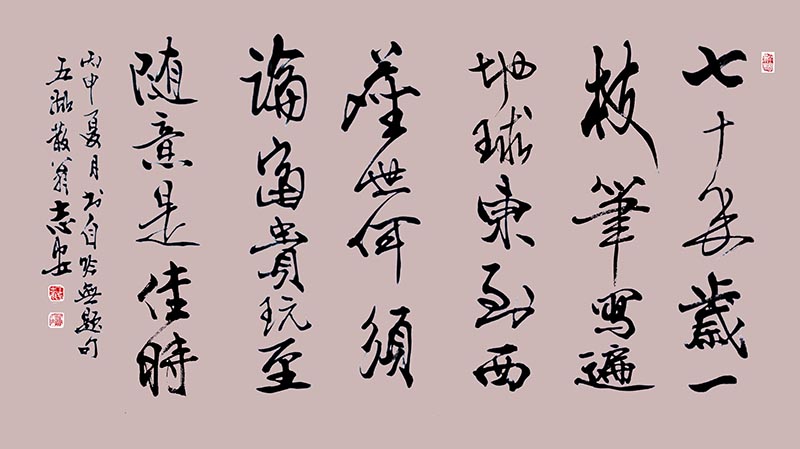 七十年歲一
枝筆寫遍
地球東到西
世何須
論富貴玩至
随意是佳時
丙申夏月书自吟無题句
五湖散翁志安